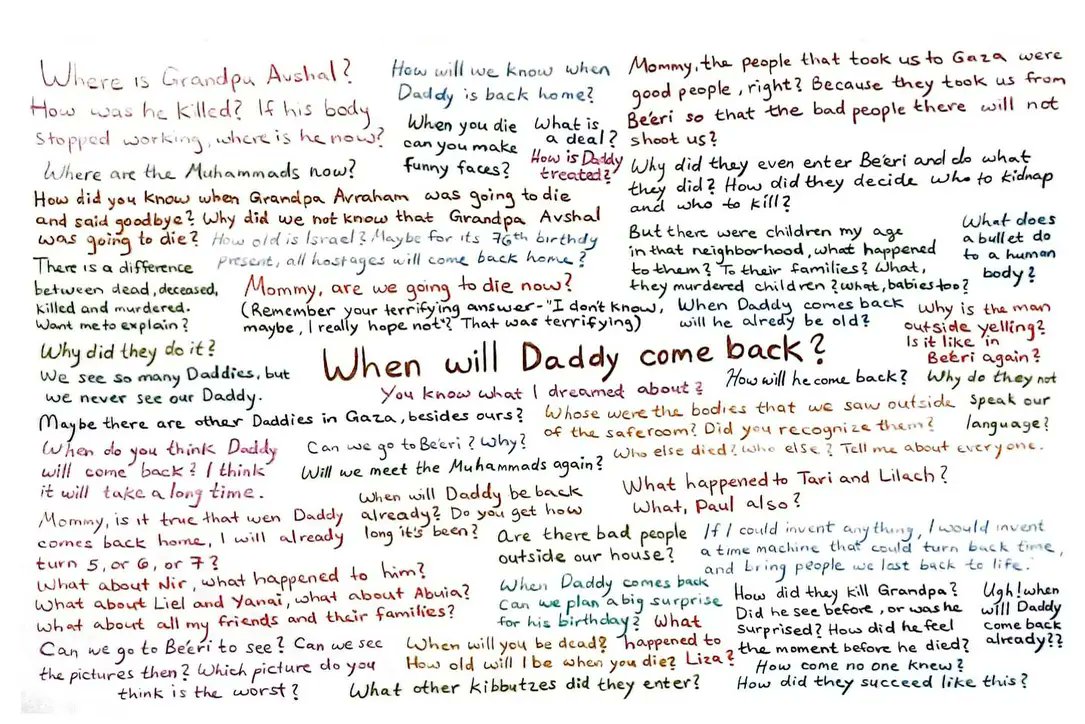 Where is Grandpa Avshal?
How was he killed? If his body
stopped working, where is he now?
Where are the Muhammads now?
How will we know when
Daddy is back home?
When you die
can you make
funny faces?
What is
a deal?
How is Daddy
treated?
Mommy, the people that took us to Gaza were
good people, right? Because they took us from
Be'eri so that the bad people there will not
shoot us?
Why did they even enter Be'eri and do what
they did? How did they decide who to kidnap
and who to kill?
How did you know when Grandpa Avraham was going to die
and said goodbye? Why did we not know that Grandpa Avshal
was going to die?
How old is Israel? Maybe for its 76th birthdy
present, all hostages will come back home?
But there were children my age
in that neighborhood, what happened
to them? To their families? What,
they murdered children? what, babies too?
What does
a bullet do
to a human
body?
There is a difference
between dead, deceased,
killed and murdered.
Want me to explain?
Mommy, are we going to die now?
(Remember your terrifying answer - "I don't know,
maybe, I really hope not"? That was terrifying)
When Daddy comes back
will he alredy be old?
Why is the man
outside yelling?
Is it like in
Be'eri again?
Why did they do it?
We see so many Daddies, but
we never see our Daddy.
When will Daddy come back?
You know what I dreamed about?
How will he come back?
Why do they not
speak our
language?
Maybe there are other Daddies in Gaza, besides ours?
Whose were the bodies that we saw outside
of the saferoom? Did you recognize them?
Who else died? Who else? Tell me about everyone.
When do you think Daddy
will come back? I think
it will take a long time.
Can we go to Be'eri? Why?
Will we meet the Muhammads again?
When will Daddy be back
already? Do you get how
long it's been?
What happened to Tari and Lilach?
What, Paul also?
Mommy, is it true that wen Daddy
comes back home, I will already
turn 5, or 6, or 7?
Are there bad people
outside our house?
If I could invent anything, I would invent
a time machine that could turn back time,
and bring people we lost back to life.
What about Nir, what happened to him?
What about Liel and Yanai, what about Abuia?
What about all my friends and their families?
When Daddy comes back
Can we plan a big surprise
for his birthday?
What
happened to
Liza?
How did they kill Grandpa?
Did he see before, or was he
surprised? How did he feel
the moment before he died?
Ugh! when
will Daddy
come back
already??
Can we go to Be'eri to see? Can we see
the pictures then? Which picture do you
think is the worst?
When will you be dead?
How old will I be when you die?
How come no one knew?
What other kibbutzes did they enter?
How did they succeed like this?